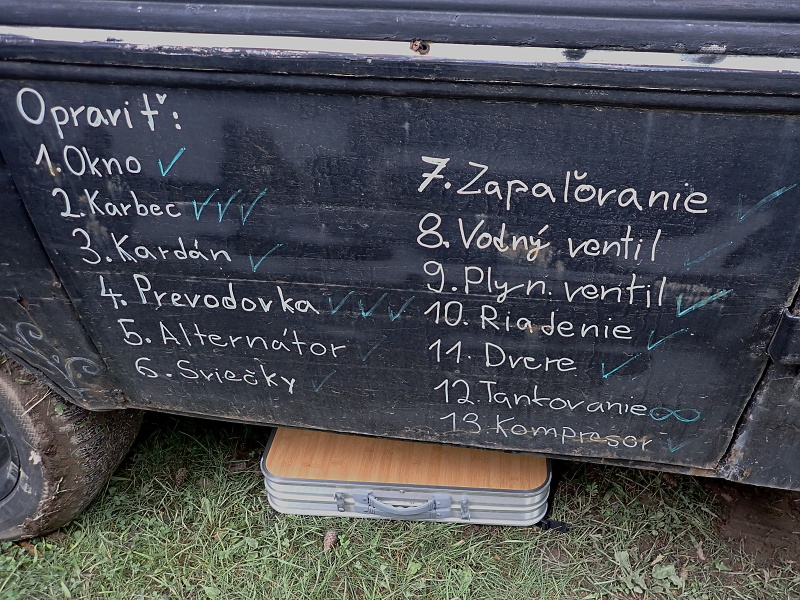 Opraviť:
1. Okno ✓
2. Karbec ✓✓✓
3. Kardán ✓
4. Prevodovka ✓✓✓
5. Alternátor ✓
6. Sviečky ✓
7. Zapaľovanie ✓
8. Vodný ventil ✓
9. Plyn. ventil ✓
10. Riadenie ✓
11. Dvere ✓
12. Tankovanie ∞
13. Kompresor ✓